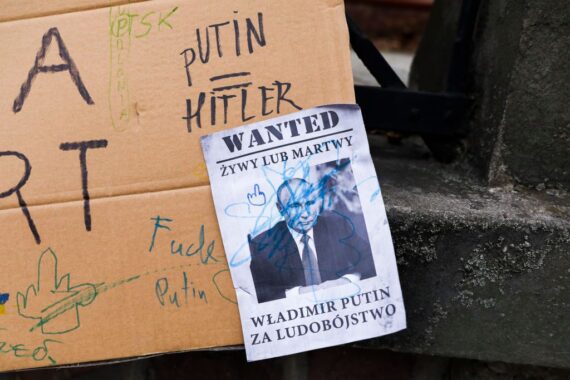 PTSK
PUTIN
=
HITLER
A
RT
Fuck
Putin
WANTED
ŻYWY LUB MARTWY
WŁADIMIR PUTIN
ZA LUDOBÓJSTWO